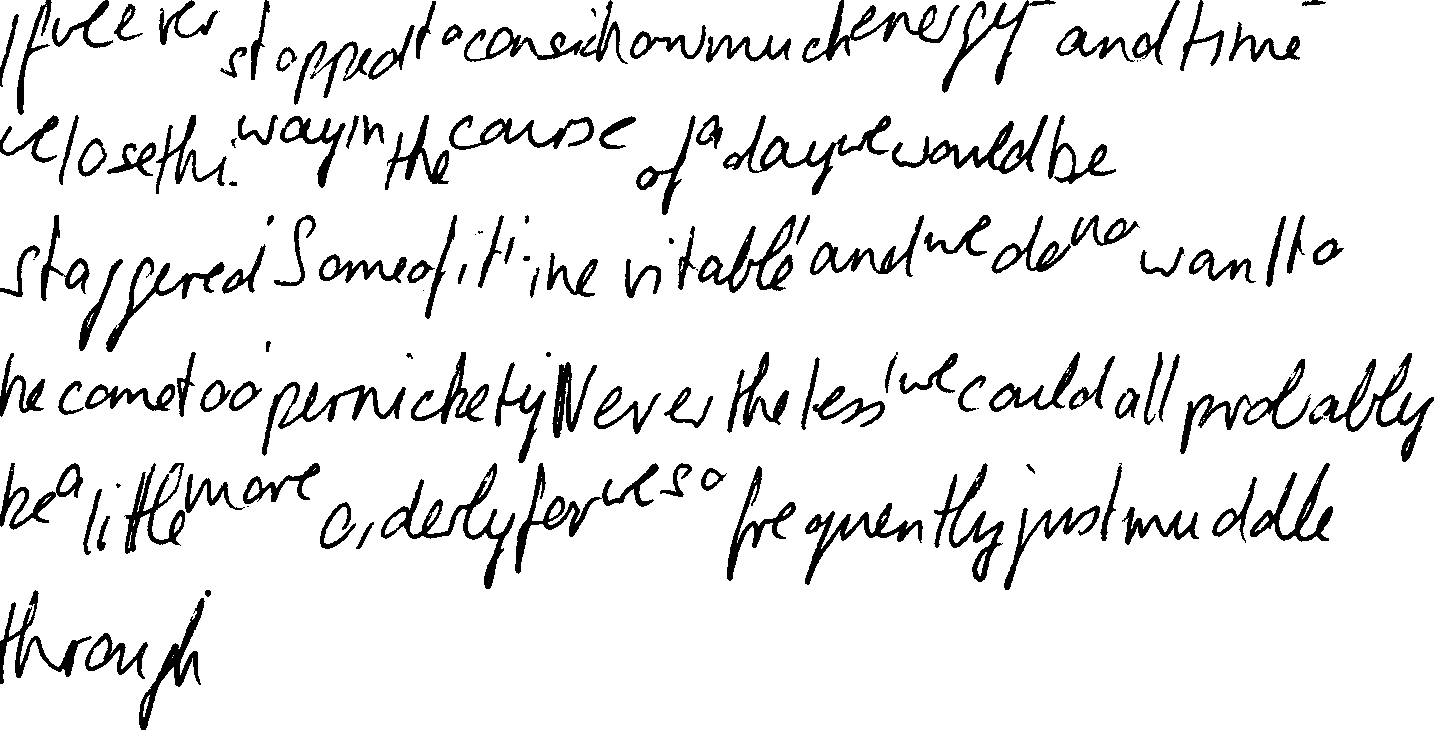 If we ever stopped to consid how much energy and time
we lose thi. way in the course of a day we would be
staggered. Some of it i. inevitable and we do no want to
become too pernickety. Nevertheless, we could all probably
be a little more orderly for we so frequently just muddle
through.